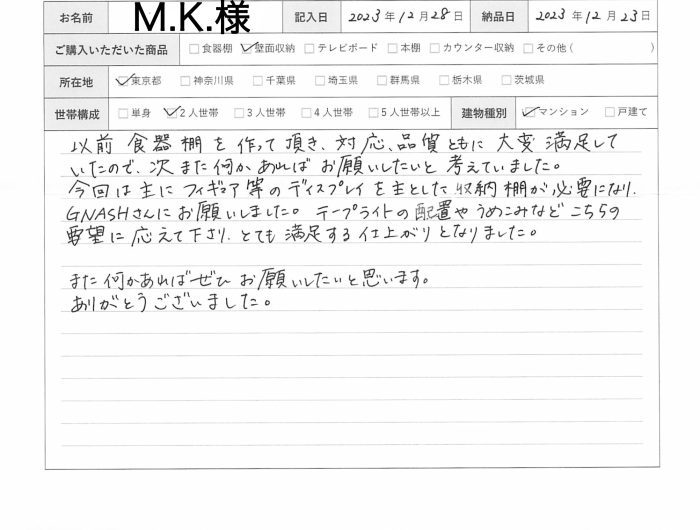 お名前 M.K.様 記入日 2023年12月28日 納品日 2023年12月23日
ご購入いただいた商品 □食器棚 ☑壁面収納 □テレビボード □本棚 □カウンター収納 □その他( )
所在地 ☑東京都 □神奈川県 □千葉県 □埼玉県 □群馬県 □栃木県 □茨城県
世帯構成 □単身 ☑2人世帯 □3人世帯 □4人世帯 □5人世帯以上 建物種別 ☑マンション □戸建て
以前 食器棚を作って頂き、対応、品質ともに大変満足して
いたので、次また何かあればお願いしたいと考えていました。
今回は主にフィギュア等のディスプレイを主とした収納棚が必要になり、
GNASHさんにお願いしました。テープライトの配置やうめこみなどこちらの
要望に応えて下さり、とても満足する仕上がりとなりました。
また何かあればぜひお願いしたいと思います。
ありがとうございました。